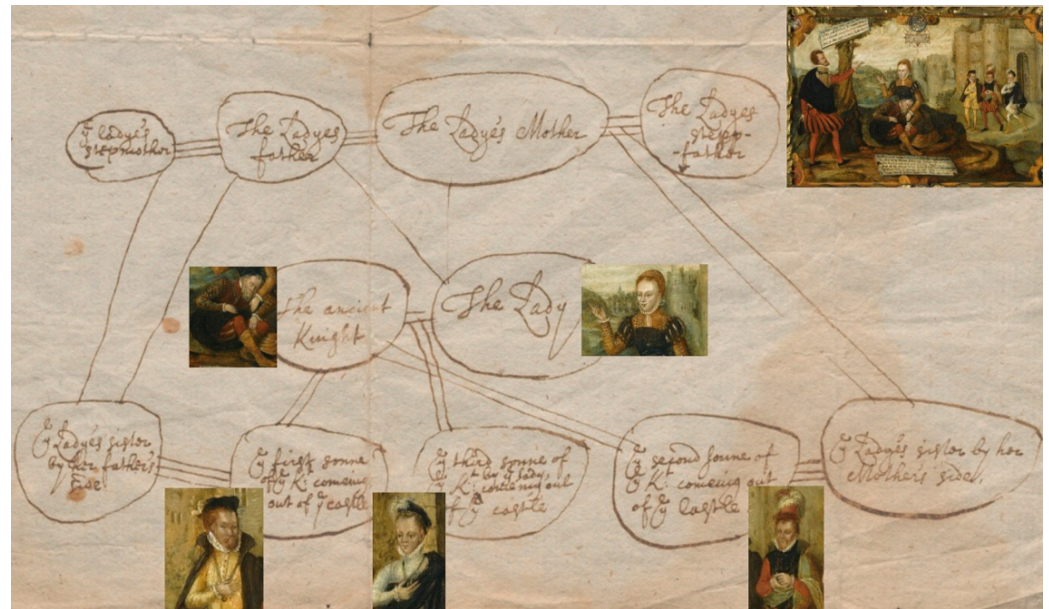 ye Ladyes
stepmother
The Ladyes
father
The Ladyes Mother
The Ladyes
stepp-
-father
The ancient
Knight
The Lady
ye Ladyes sister
by her father's
side
ye first sonne
of ye K: comeing
out of ye castle
ye third sonne of
ye K: by ye lady
comeing out
of ye castle
ye second sonne of
ye K: comeing out
of ye Castle
ye Ladyes sister by her
Mothers side.